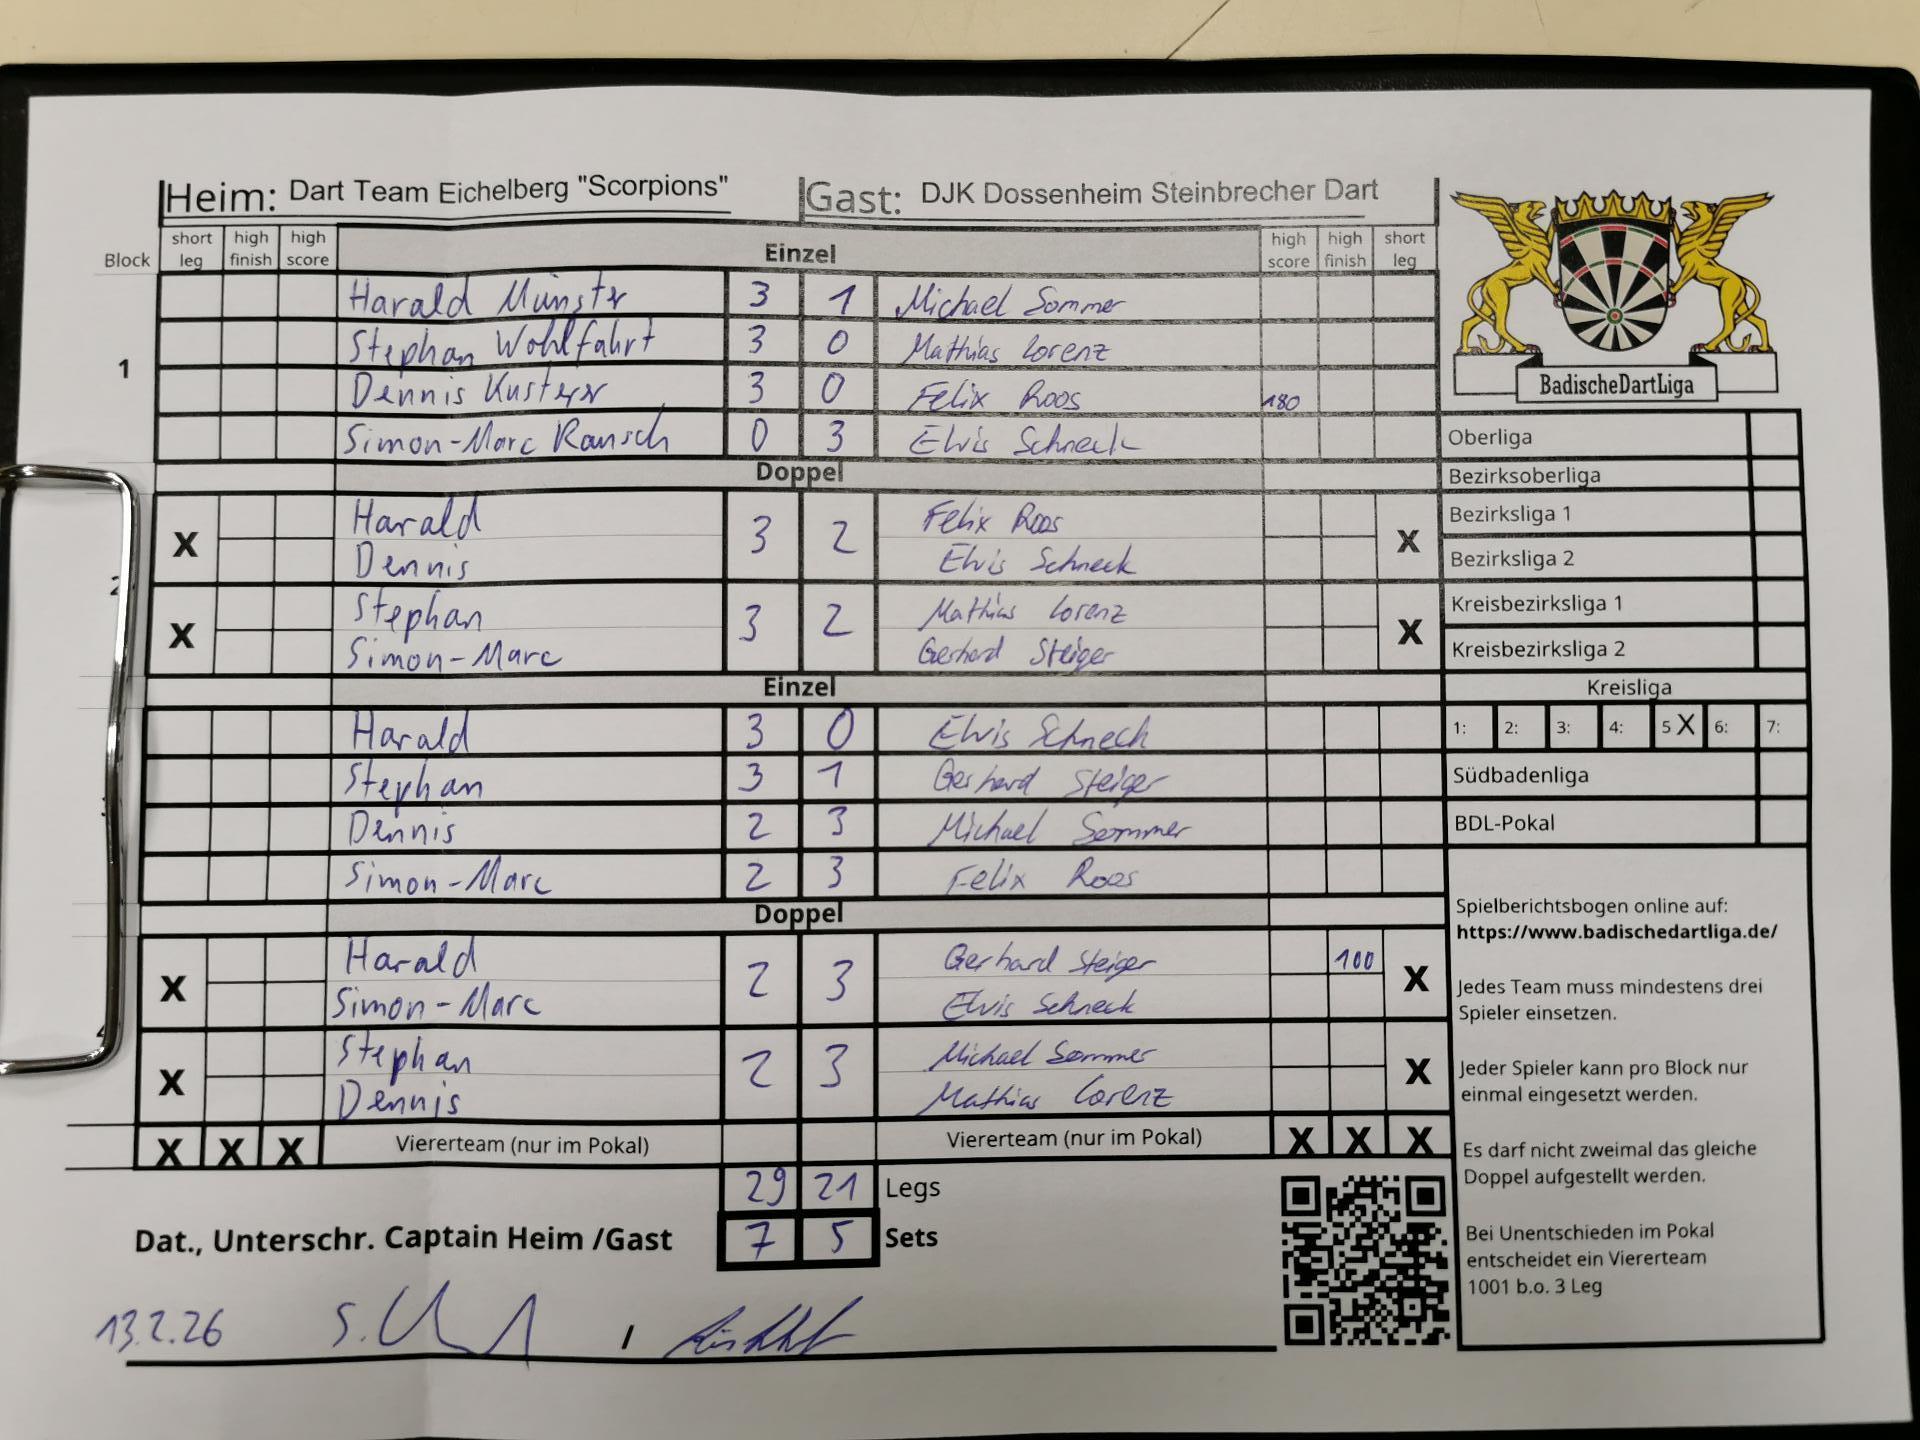 Heim: Dart Team Eichelberg "Scorpions" Gast: DJK Dossenheim Steinbrecher Dart
Block short leg high finish high score Einzel high score high finish short leg
1
Harald Münster 3 1 Michael Sommer
Stephan Wohlfahrt 3 0 Mathias Lorenz
Dennis Kusterer 3 0 Felix Roos 180
Simon-Marc Rausch 0 3 Elvis Schneck
Doppel
2
Harald 3 2 Felix Roos
X Dennis Elvis Schneck X
Stephan 3 2 Mathias Lorenz
X Simon-Marc Gerhard Steiger X
Einzel
Harald 3 0 Elvis Schneck
Stephan 3 1 Gerhard Steiger
Dennis 2 3 Michael Sommer
Simon-Marc 2 3 Felix Roos
Doppel
Harald 2 3 Gerhard Steiger 100
X Simon-Marc Elvis Schneck X
Stephan 2 3 Michael Sommer
X Dennis Mathias Lorenz X
X X X Vierterteam (nur im Pokal) Vierterteam (nur im Pokal) X X X
29 21 Legs
Dat., Unterschr. Captain Heim /Gast 7 5 Sets
13.2.26 /
BadischeDartLiga
Oberliga
Bezirksoberliga
Bezirksliga 1
Bezirksliga 2
Kreisbezirksliga 1
Kreisbezirksliga 2
Kreisliga
1: 2: 3: 4: 5 X 6: 7:
Südbadenliga
BDL-Pokal
Spielberichtsbogen online auf:
https://www.badischedartliga.de/
Jedes Team muss mindestens drei
Spieler einsetzen.
Jeder Spieler kann pro Block nur
einmal eingesetzt werden.
Es darf nicht zweimal das gleiche
Doppel aufgestellt werden.
Bei Unentschieden im Pokal
entscheidet ein Viererteam
1001 b.o. 3 Leg